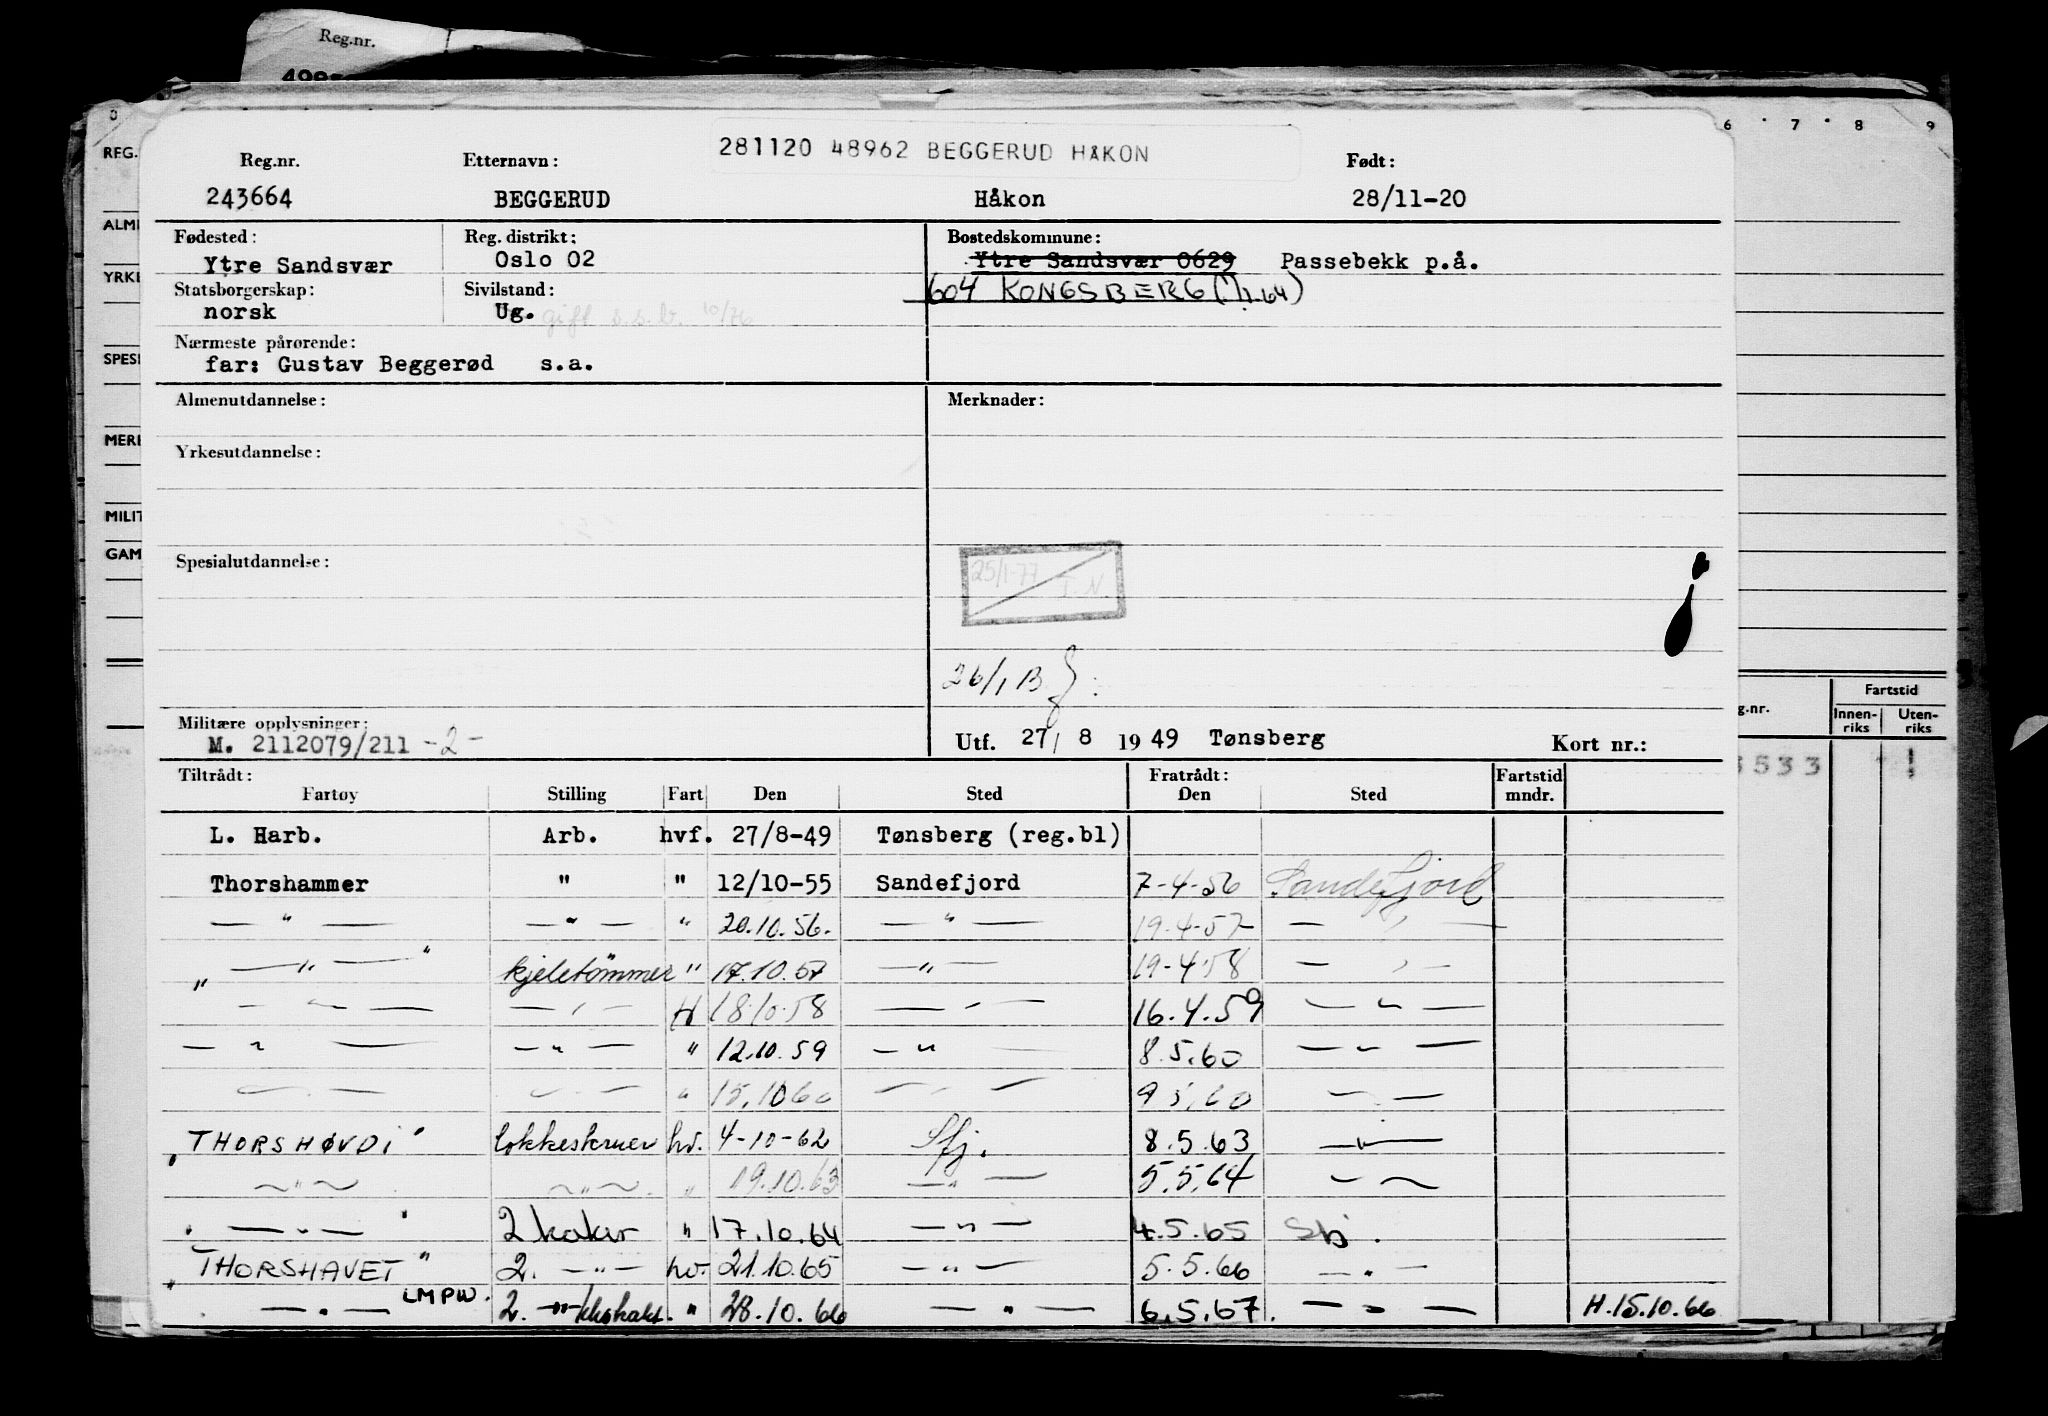 Reg.nr.
0 6 7 8 9
281120 48962 BEGGERUD HÅKON
REG. Reg.nr. Etternavn: Født:
243664 BEGGERUD Håkon 28/11-20
ALM Fødested: Reg. distrikt: Bostedskommune:
Ytre Sandsvær Oslo 02 Ytre Sandsvær 0629 Passebekk p.å.
YRKE Statsborgerskap: Sivilstand: 604 KONGSBERG (1/1-64)
norsk Ug. gift s.s.b. 10/76
Nærmeste pårørende:
SPESI far: Gustav Beggerød s.a.
Almenutdannelse: Merknader:
MERK
Yrkesutdannelse:
MILIT
GAM
Spesialutdannelse: 25/1-77 I.N.
26/1 B
Fartstid
g.nr. Innen-riks Uten-riks
Militære opplysninger:
M. 2112079/211 -2- Utf. 27/8 1949 Tønsberg Kort nr.:
3533
Tiltrådt: Fratrådt: Fartstid mndr.
Fartøy Stilling Fart Den Sted Den Sted
L. Harb. Arb. hvf. 27/8-49 Tønsberg (reg.bl)
Thorshammer " " 12/10-55 Sandefjord 7-4-56 Sandefjord
— " — — " — " 20.10.56. — " — 19-4-57 — " —
" — " — " kjeletømmer " 17.10.57 — " — 19-4-58 — " —
— " — — " — H 18.10.58 — " — 16.4.59 — " —
— " — — " — " 12.10.59 — " — 8.5.60 — " —
— " — — " — " 15.10 60 — " — — " —
"THORSHØVDI" lokkeskruer hv. 4-10-62 Sfj. 8.5.63 — " —
— " — — " — " 19.10.63 — " — 5.5.64 — " —
" — " — " 2 kokr " 17.10.64 — " — 4.5.65
"THORSHAVET" 2. — " — hv. 21.10.65 — " — 5.5.66 — " —
— " — LMPW. 2. — " — " 28.10.66 — " — 6.5.67. — " — H.15.10.66